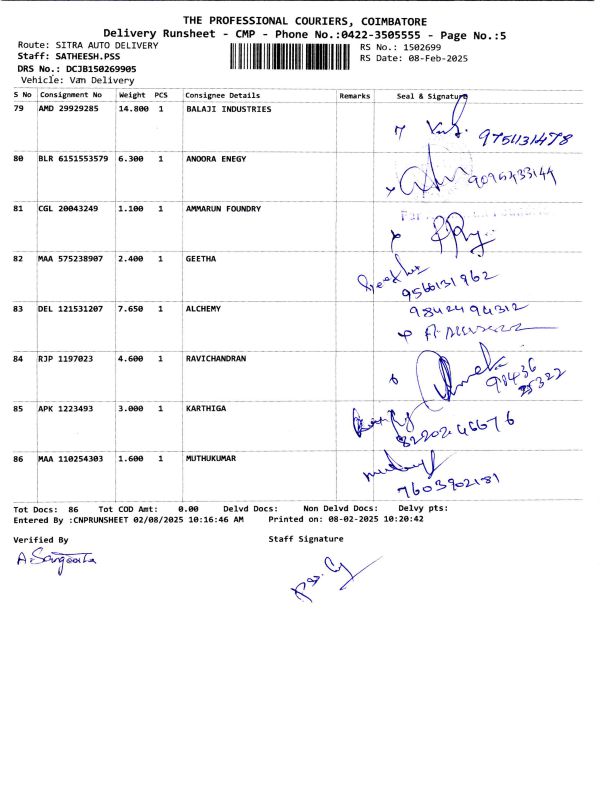 THE PROFESSIONAL COURIERS, COIMBATORE
Delivery Runsheet - CMP - Phone No.:0422-3505555 - Page No.:5
Route: SITRA AUTO DELIVERY
RS No.: 1502699
Staff: SATHEESH.PSS
RS Date: 08-Feb-2025
DRS No.: DCJB150269905
Vehicle: Van Delivery
S No Consignment No Weight PCS Consignee Details Remarks Seal & Signature
79 AMD 29929285 14.800 1 BALAJI INDUSTRIES
9751131478
80 BLR 6151553579 6.300 1 ANOORA ENEGY
81 CGL 20043249 1.100 1 AMMARUN FOUNDRY
For
82 MAA 575238907 2.400 1 GEETHA
9566131962
83 DEL 121531207 7.650 1 ALCHEMY
9842494312
84 RJP 1197023 4.600 1 RAVICHANDRAN
98436
25322
85 APK 1223493 3.000 1 KARTHIGA
82202 46676
86 MAA 110254303 1.600 1 MUTHUKUMAR
7603902181
Tot Docs: 86 Tot COD Amt: 0.00 Delvd Docs: Non Delvd Docs: Delvy pts:
Entered By :CNPRUNSHEET 02/08/2025 10:16:46 AM Printed on: 08-02-2025 10:20:42
Verified By Staff Signature
A. Sangeetha